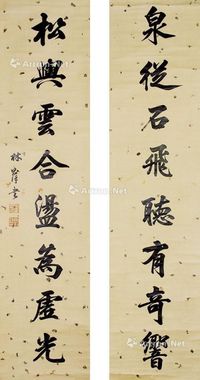 泉從石飛聽有奇響
松與雲合盪為虛光
林則徐